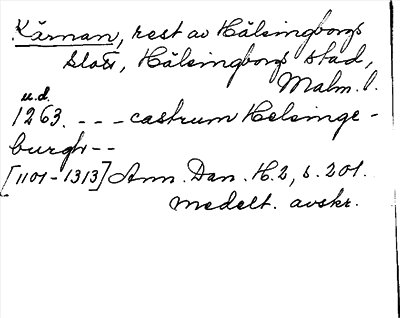 Kärnan, rest av Hälsingborgs
slott, Hälsingborgs stad,
Malm. l.
u.d.
1263. - - - castrum Helsinge-
burgh - -
[1101-1313] Ann. Dan. H.2, s. 201.
medelt. avskr.